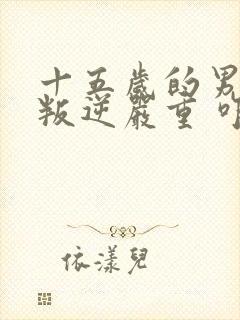 十五歲的男
叛逆嚴重 咋
依漾兒